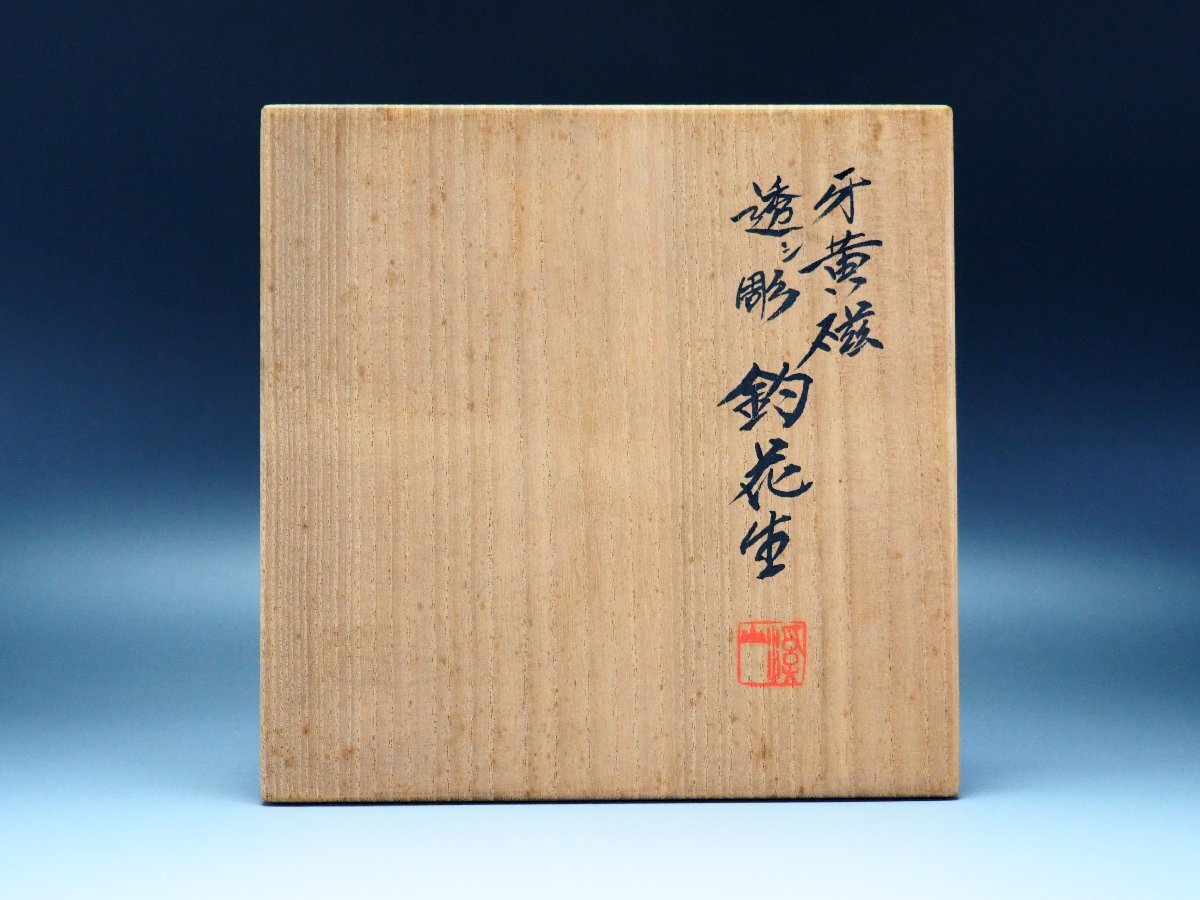 牙黄磁
透シ彫
釣花生